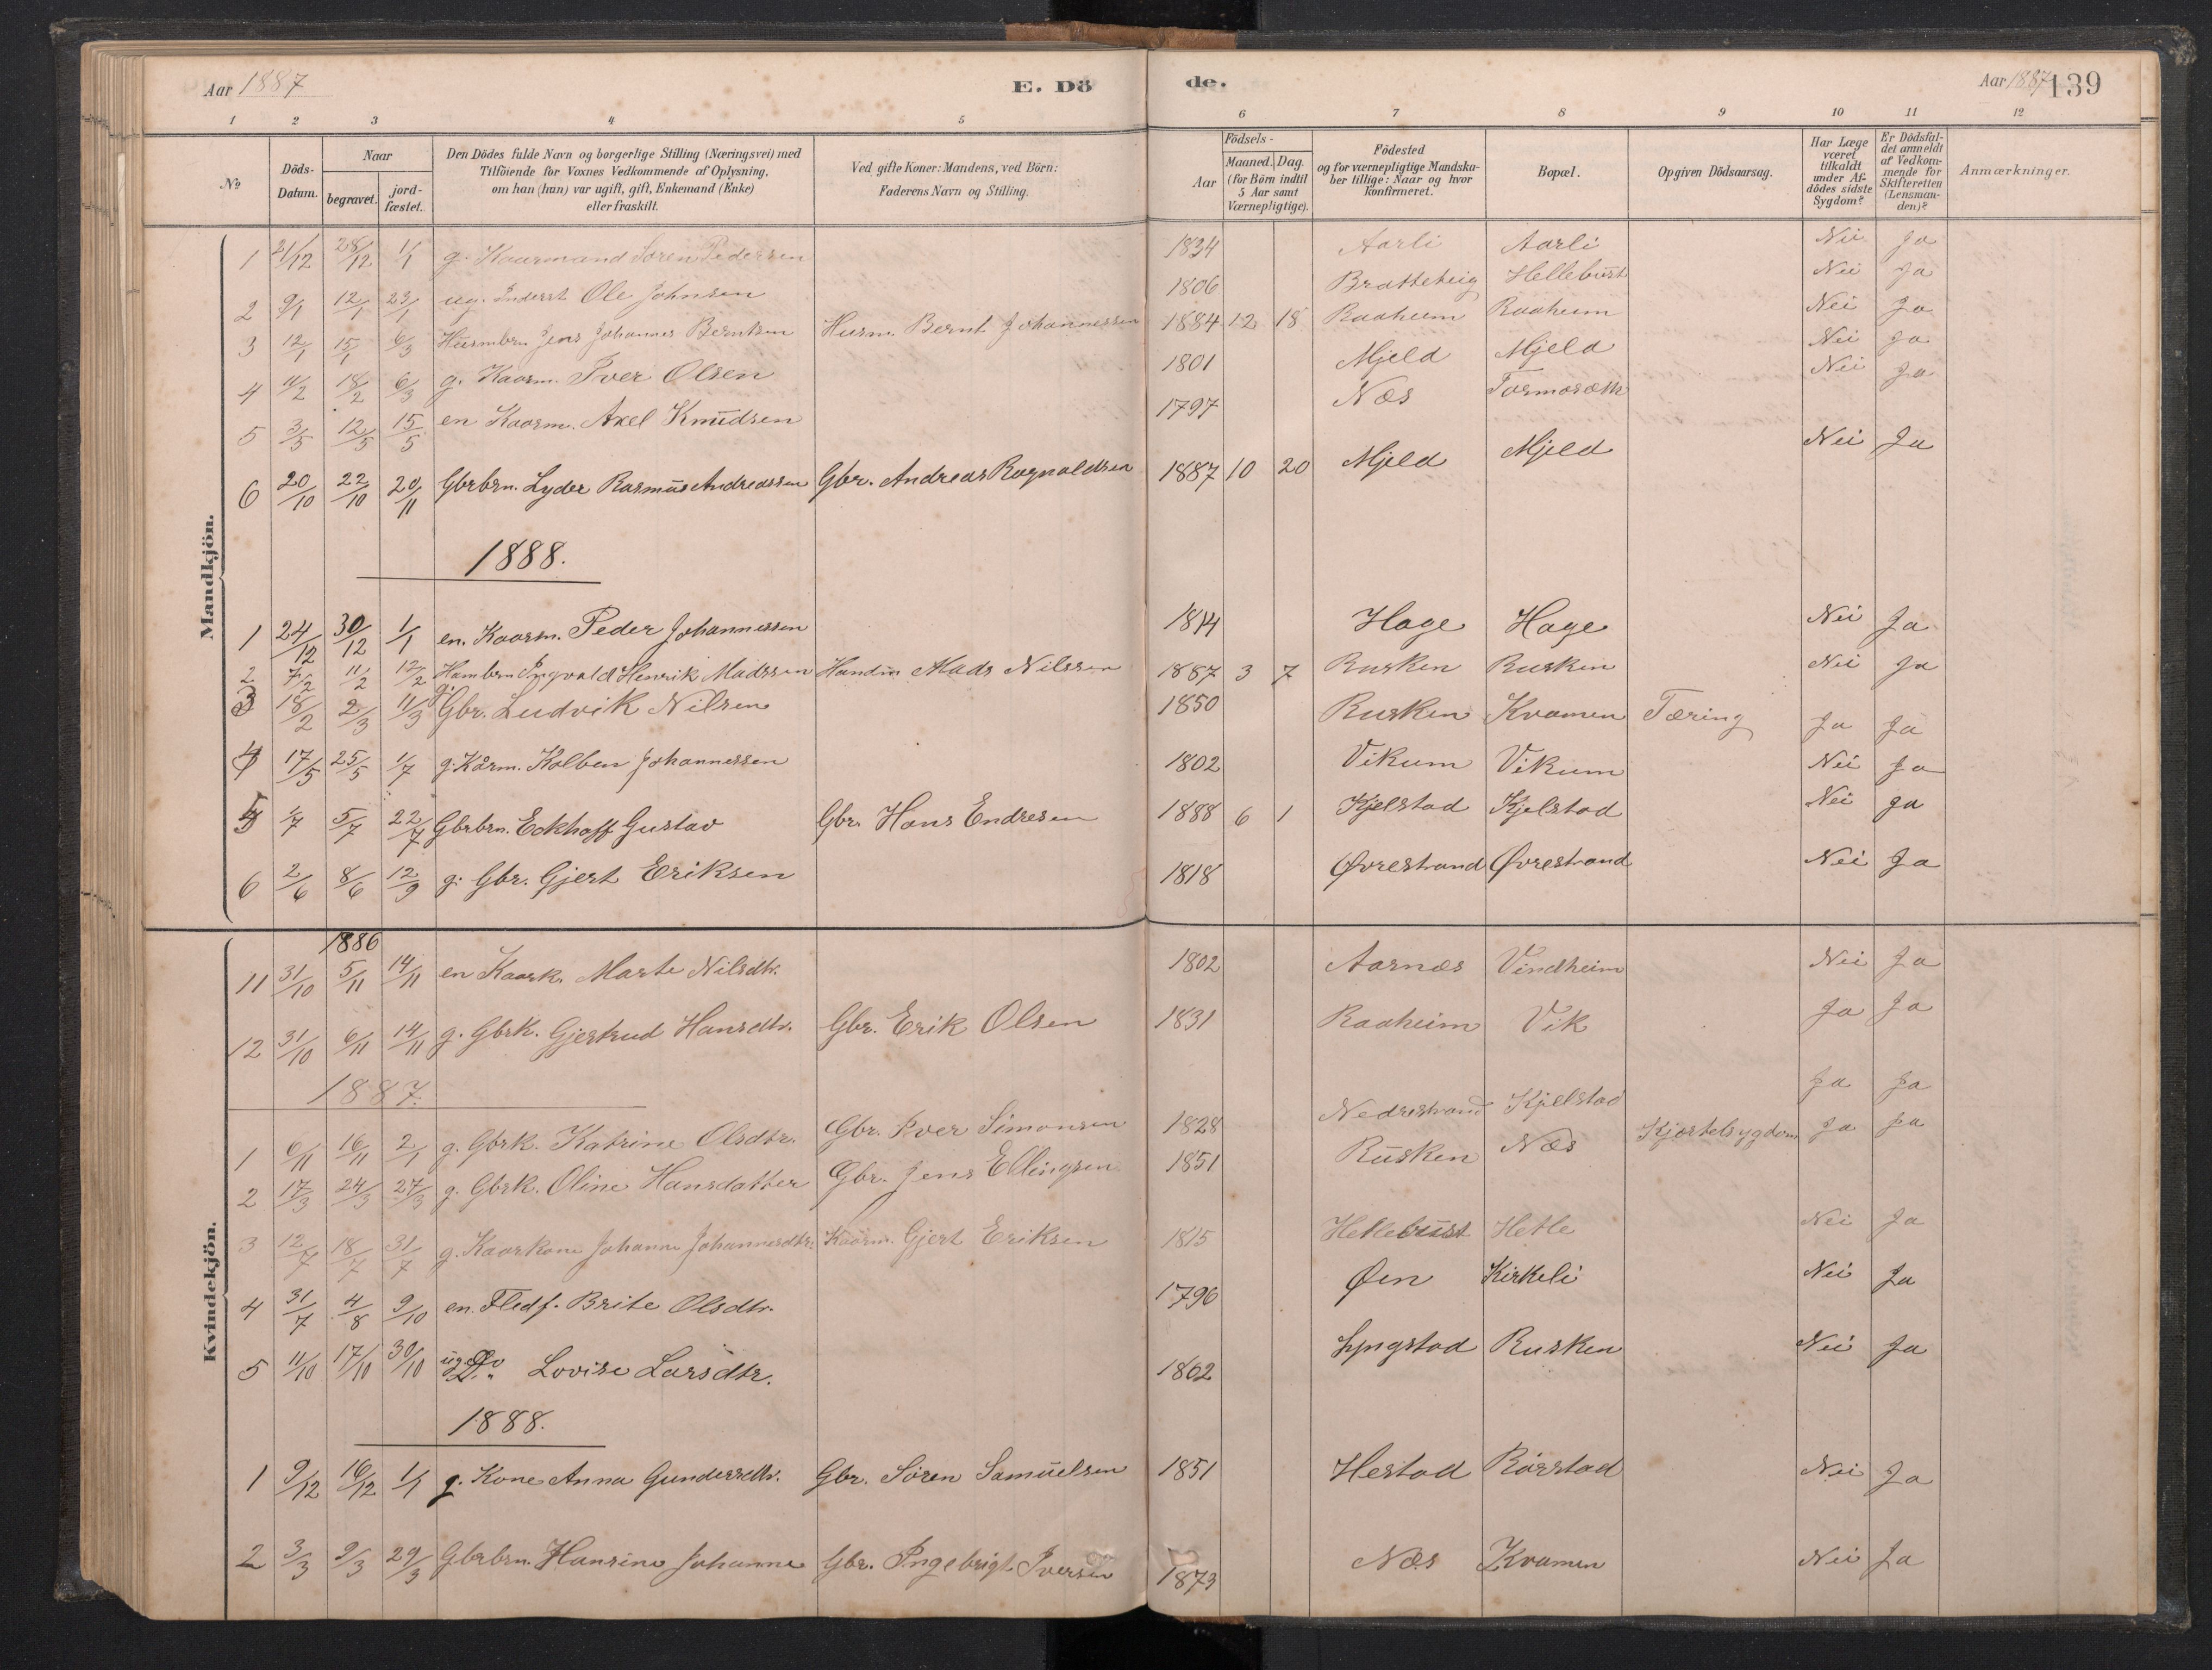 Aar 1887 E. Dö de. Aar 1887 139
1 2 3 4 5 6 7 8 9 10 11 12
No Döds-Datum. Naar begravet. jord-fæstet. Den Dödes fulde Navn og borgerlige Stilling (Næringsvei) med Tilföiende for Voxnes Vedkommende af Oplysning, om han (hun) var ugift, gift, Enkemand (Enke) eller fraskilt. Ved gifte Koner: Mandens, ved Börn: Faderens Navn og Stilling. Födsels- Aar Maaned. Dag. (for Börn indtil 5 Aar samt Værnepligtige). Födested og for værnepligtige Mandskaber tillige: Naar og hvor konfirmeret. Bopæl. Opgiven Dödsaarsag. Har Læge været tilkaldt under Afdödes sidste Sygdom? Er Dödsfaldet anmeldt af Vedkommende for Skifteretten (Lensmanden)? Anmærkninger.
Mandkjön.
1 21/12 28/12 1/1 g. Kaarmand Sören Pedersen 1834 Aarli Aarli Nei Ja
2 9/1 12/1 23/1 ug. Inderst Ole Johnsen 1806 Bratteteig Hellebust Nei Ja
3 12/1 15/1 6/3 Husmbrn Jens Johannes Berntsen Husm. Bernt Johannessen 1884 12 18 Raaheim Raaheim Nei Ja
4 11/2 18/2 6/3 g. Kaarm. Iver Olsen 1801 Mjeld Mjeld Nei Ja
5 3/5 12/5 15/5 en Kaarm. Axel Knudsen 1797 Næs Tormosæth Nei Ja
6 20/10 22/10 20/11 Gbrbrn. Lyder Rasmus Andreassen Gbr. Andreas Ragnaldsen 1887 10 20 Mjeld Mjeld Nei Ja
1888.
1 24/12 30/12 1/1 en. Kaarm. Peder Johannessen 1814 Hage Hage Nei Ja
2 7/2 11/2 12/2 Hambrn Ingvald Henrik Madssen Handm Mads Nilssen 1887 3 7 Rusken Rusken Nei Ja
3 18/2 2/3 11/3 g. Gbr. Ludvik Nilsen 1850 Rusken Kvamen Tæring Ja Ja
4 17/5 25/5 1/7 g. Kårm. Kolben Johannessen 1802 Vikum Vikum Nei Ja
5 1/7 5/7 22/7 Gbrbrn. Eckhoff Gustav Gbr. Hans Endresen 1888 6 1 Kjelstad Kjelstad Nei Ja
6 2/6 8/6 12/9 g. Gbr. Gjert Eriksen 1818 Øvrestrand Øvrestrand Nei Ja
Kvindekjön.
1886
11 31/10 5/11 14/11 en Kaark. Marte Nilsdtr. 1802 Aarnæs Vindheim Nei Ja
12 31/10 6/11 14/11 g. Gbrk. Gjertrud Hansdtr. Gbr. Erik Olsen 1831 Raaheim Vik Ja Ja
1887.
1 6/11 16/11 2/1 g. Gbrk. Katrine Olsdtr. Gbr. Iver Simonsen 1828 Nedrestrand Kjelstad Ja Ja
2 17/3 24/3 27/3 g. Gbrk. Oline Hansdatter Gbr. Jens Ellingsen 1851 Rusken Næs Kjertelsygdom Ja Ja
3 12/7 18/7 31/7 g. Kaarkone Johanne Johannesdtr. Kaarm. Gjert Eriksen 1815 Hellebust Hetle Nei Ja
4 31/7 4/8 9/10 en. Fledf. Brite Olsdtr. 1796 Øen Kirkeli Nei Ja
5 11/10 17/10 30/10 ug. Do Lovise Larsdtr. 1802 Lyngstad Rusken Nei Ja
1888.
1 9/12 16/12 1/1 g. Kone Anna Gundersdtr. Gbr. Sören Samuelsen 1851 Hestad Rörstad Nei Ja
2 3/3 9/3 29/3 Gbrbrn. Hansine Johanne Gbr. Ingebrigt Iversen 1873 Næs Kvamen Nei Ja